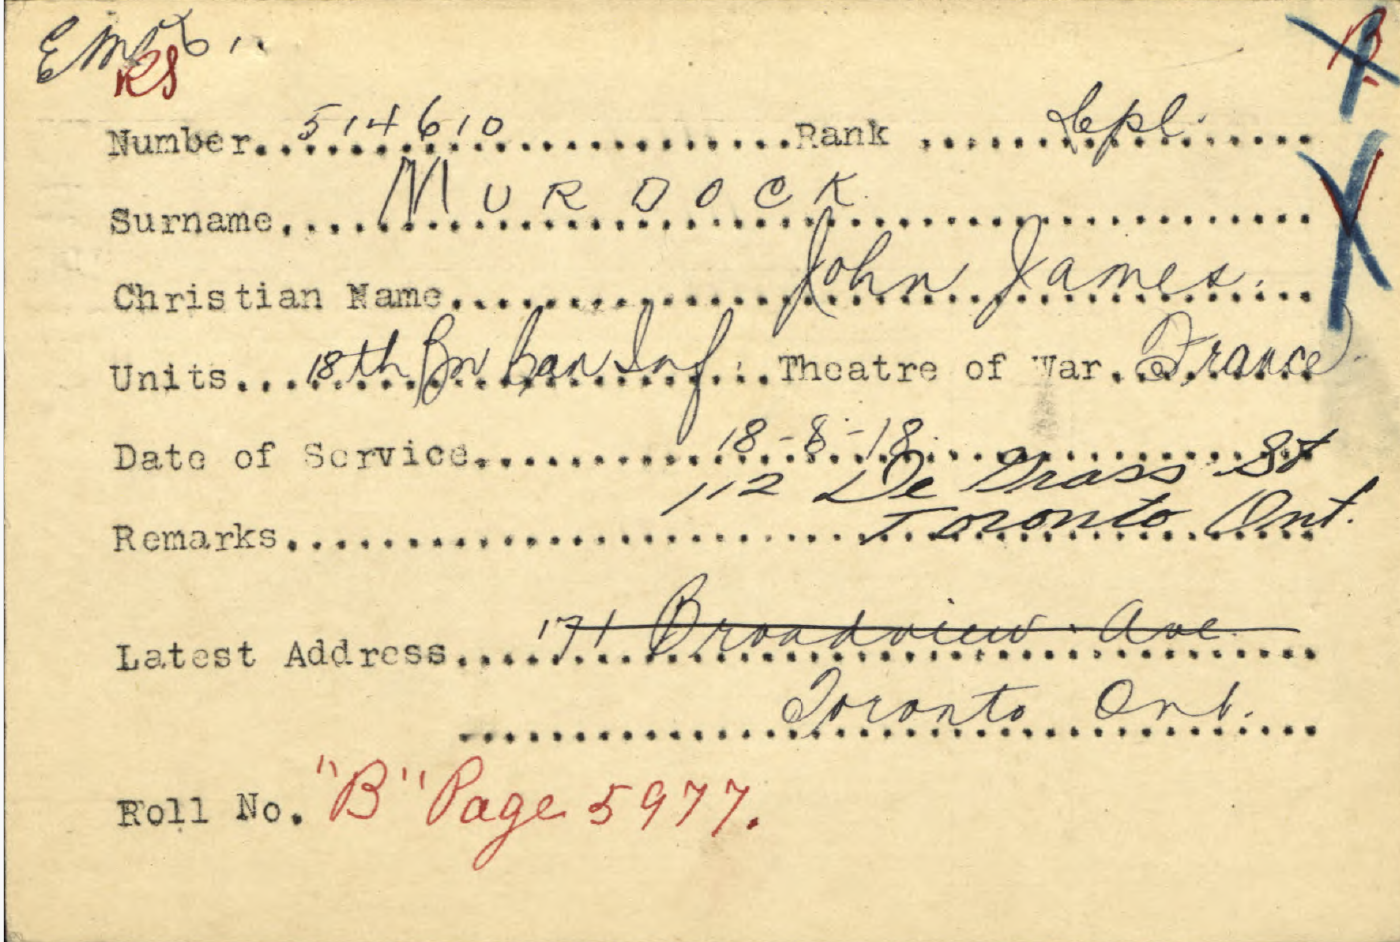 RS
B
Number 514610 Rank Cpl.
Surname MURDOCK
Christian Name John James.
Units 18th Bn Can Inf. Theatre of War France.
Date of Service 18-8-18.
112 De Grass St
Remarks Toronto Ont.
Latest Address 171 Broadview Ave
Toronto Ont.
Roll No. "B" Page 5977.